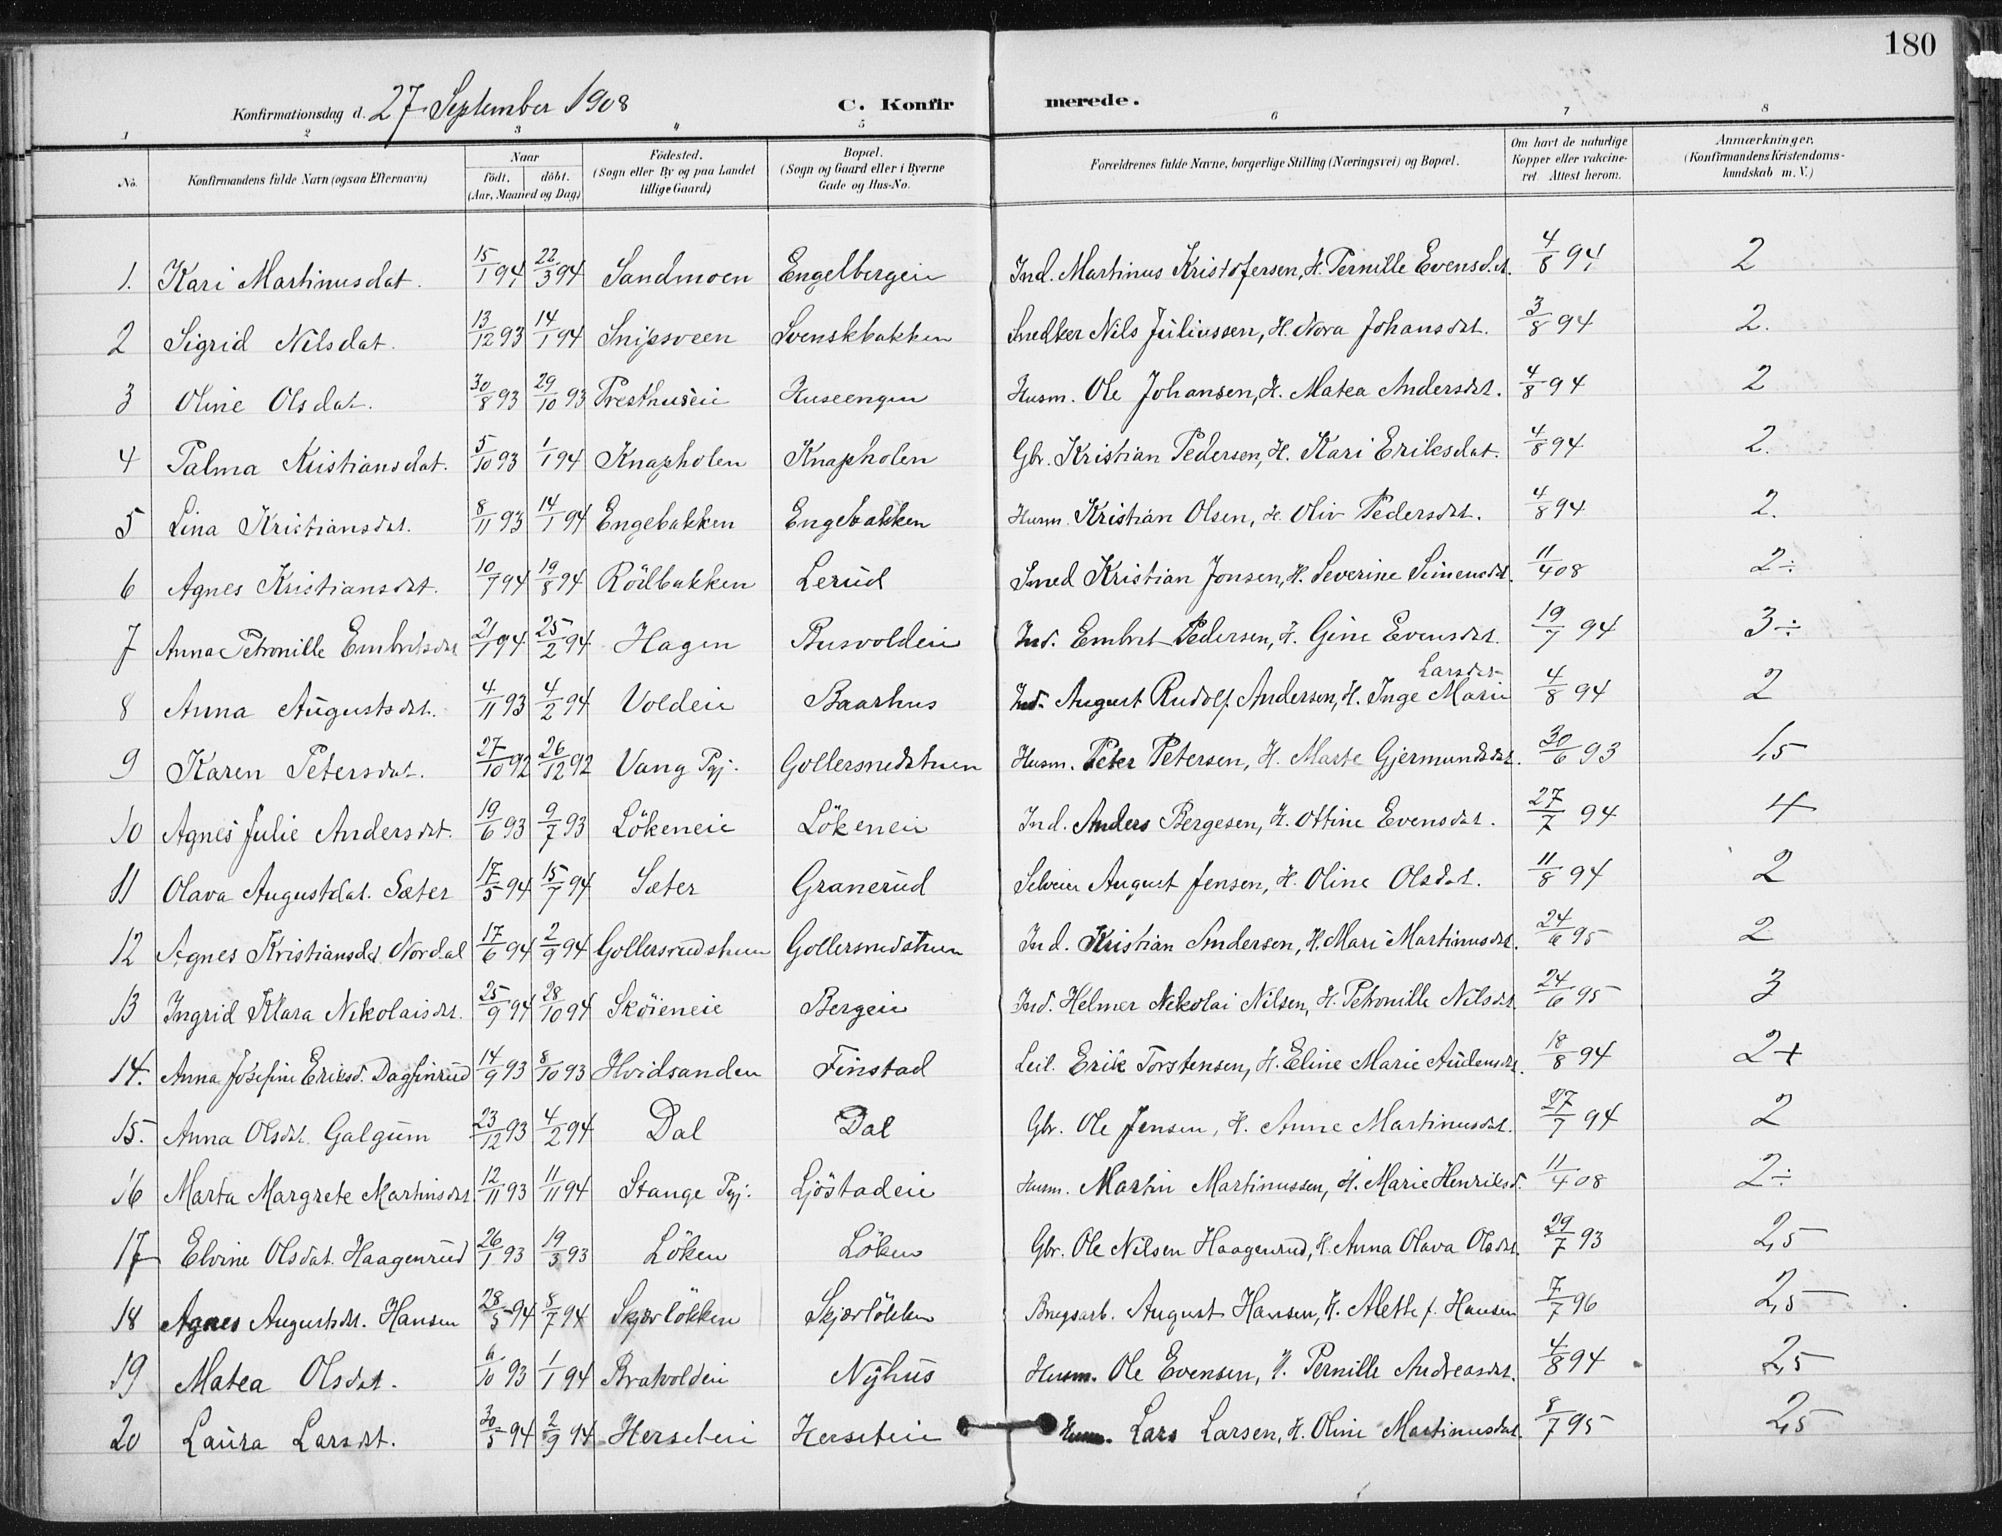 180
Konfirmationsdag d. 27 September 1908 C. Konfirmerede.
1 2 3 4 5 6 7 8
No. Konfirmandens fulde Navn (ogsaa Efternavn) Naar födt. döbt. (Aar, Maaned og Dag) Födested. (Sogn eller By og paa Landet tillige Gaard) Bopæl. (Sogn og Gaard eller i Byerne Gade og Hus-No. Forældrenes fulde Navne, borgerlige Stilling (Næringsvei) og Bopæl. Om havt de naturlige Kopper eller vakcineret. Attest herom. Anmærkninger. (Konfirmandens Kristendomskundskab m. V.)
1. Kari Martinusdat. 15/1 94 22/3 94 Sandmoen Engelbergeie Ind. Martinus Kristofersen, H. Pernille Evensdat. 4/8 94 2
2 Sigrid Nilsdat. 13/12 93 14/1 94 Snipsveen Svenskbakken Snedker Nils Juliussen, H. Nora Johansdat. 3/8 94 2.
3 Oline Olsdat. 30/8 93 29/10 93 Presthuseie Huseengen Husm. Ole Johansen, H. Matea Andersdat. 4/8 94 2
4 Palma Kristiansdat. 5/10 93 1/1 94 Knapholen Knapholen Gbr. Kristian Pedersen, H. Kari Eriksdat. 4/8 94 2.
5 Lina Kristiansdat. 8/11 93 14/1 94 Engebakken Engebakken Husm. Kristian Olsen, H. Oliv Pedersdat. 4/8 94 2.
6 Agnes Kristiansdat. 10/7 94 19/8 94 Rödbakken Lerud Smed Kristian Jonsen, H. Severine Simensdat. 11/4 08 2÷
7 Anna Petronille Embretsdat 21/1 94 25/2 94 Hagen Busvoldeie Ind. Embret Pedersen, H. Gine Evensdat. 19/7 94 3÷
8 Anna Augustsdat. 4/11 93 4/2 94 Voldeie Baarhus Ind. August Rudolf Andersen, H. Inge Marie Larsdat 4/8 94 2
9 Karen Petersdat. 27/10 92 26/12 92 Vang Pgj. Gollersrudstuen Husm. Peter Petersen, H. Marte Gjermundsdat. 30/6 93 1,5
10 Agnes Julie Andersdat. 19/6 93 9/7 93 Lökeneie Lökeneie Ind. Anders Bergesen, H. Ottine Evensdat. 27/7 94 4
11 Olava Augustdat. Sæter 17/5 94 15/7 94 Sæter Granerud Selveier August Jensen, H. Oline Olsdat. 11/8 94 2
12 Agnes Kristiansdat Nordal 17/6 94 2/9 94 Gollersrudstuen Gollersrudstuen Ind. Kristian Andersen, H. Mari Martinusdat. 24/6 95 2
13 Ingrid Klara Nikolaisdat. 25/9 94 28/10 94 Sköieneie Bergeie Ind. Helmer Nikolai Nilsen, H. Petronille Nilsdat. 24/6 95 3
14. Anna Josefine Eriksd. Dagfinrud 14/9 93 8/10 93 Hvidsanden Finstad Leil. Erik Torstensen, H. Eline Marie Audensdat. 18/8 94 2+
15. Anna Olsdat. Galgum 23/12 93 4/2 94 Dal Dal Gbr. Ole Jensen, H. Anne Martinusdat. 27/7 94 2
16 Marta Margrete Martinsdat 12/11 93 11/11 94 Stange Pgj. Ljöstadeie Husm. Martin Martinussen, H. Marie Henriksd. 11/4 08 2÷
17 Elvine Olsdat. Haagenrud 26/1 93 19/3 93 Löken Löken Gbr. Ole Nilsen Haagenrud, H. Anna Olava Olsdat. 29/7 93 2,5
18 Agnes Augustsdat. Hansen 28/5 94 8/7 94 Skjærlökken Skjærlökken Brugsarb. August Hansen, H. Alette f. Hansen 7/7 96 2,5
19 Matea Olsdat. 6/10 93 1/1 94 Bratvoldeie Nyhus Husm. Ole Evensen, H. Pernille Andreasdat. 4/8 94 2,5
20 Laura Larsdat. 30/5 94 2/9 94 Herseteie Herseteie Husm. Lars Larsen, H. Oline Martinusdat. 8/7 95 2,5